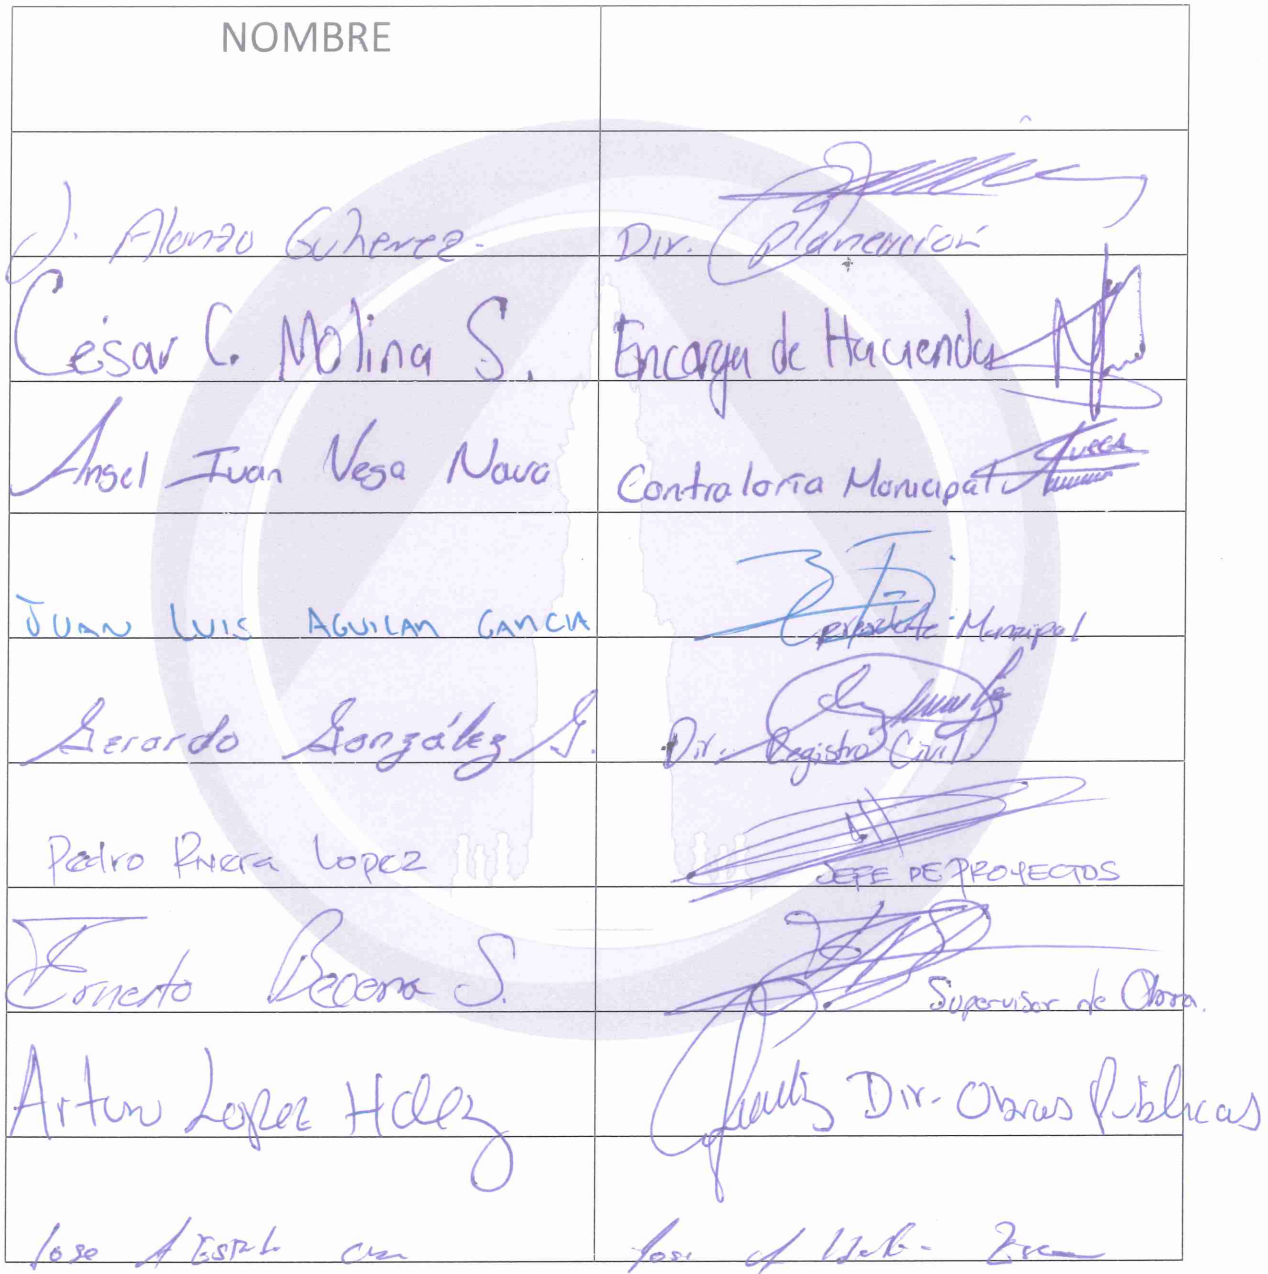 NOMBRE
J. Alonzo Gutierrez. Dir. Planeación
César C. Molina S. Encargu de Hacienda
Angel Ivan Vega Nava Contraloría Municipal
JUAN LUIS AGUILAR GARCIA Presidente Municipal
Gerardo González G. Dir. Registro Civil
Pedro Rivera Lopez JEFE DE PROYECTOS
Ernesto Becerra S. Supervisor de Obra.
Arturo Lopez Hdez Dir. Obras Públicas
Jose A